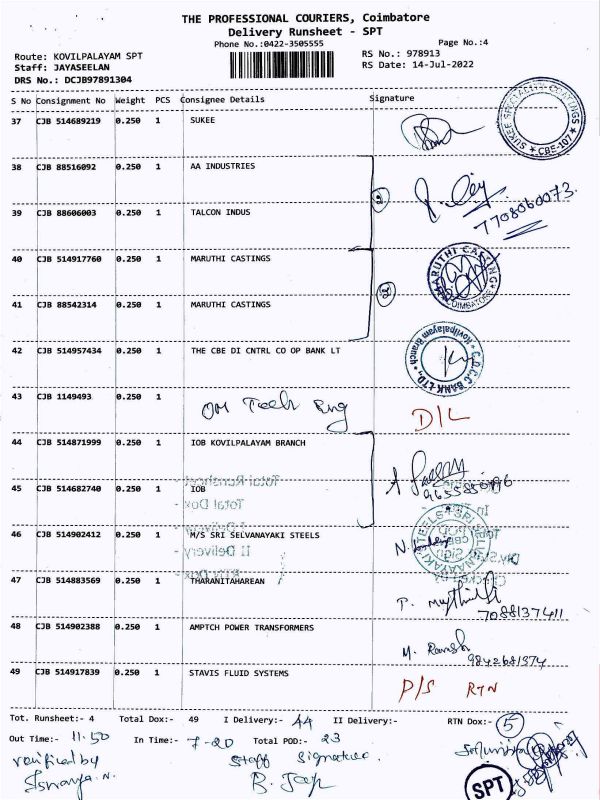 THE PROFESSIONAL COURIERS, Coimbatore
Delivery Runsheet - SPT
Phone No.:0422-3505555
Page No.:4
Route: KOVILPALAYAM SPT
RS No.: 978913
Staff: JAYASEELAN
RS Date: 14-Jul-2022
DRS No.: DCJB97891304
S No Consignment No Weight PCS Consignee Details Signature
37 CJB 514689219 0.250 1 SUKEE
SUKEE SPECIALITY COATINGS CBE-107
38 CJB 88516092 0.250 1 AA INDUSTRIES
39 CJB 88606003 0.250 1 TALCON INDUS
7708060073
40 CJB 514917760 0.250 1 MARUTHI CASTINGS
MARUTHI CASTING COIMBATORE
41 CJB 88542314 0.250 1 MARUTHI CASTINGS
42 CJB 514957434 0.250 1 THE CBE DI CNTRL CO OP BANK LT
C.D.C.C. BANK LTD., Kovilpalayam Branch
43 CJB 1149493 0.250 1 OM Tech Eng D/L
44 CJB 514871999 0.250 1 IOB KOVILPALAYAM BRANCH
Total Runsheet -
45 CJB 514682740 0.250 1 IOB
Total Dox -
46 CJB 514902412 0.250 1 M/S SRI SELVANAYAKI STEELS
II Delivery -
47 CJB 514883569 0.250 1 THARANITAHAREAN
7088137411
48 CJB 514902388 0.250 1 AMPTCH POWER TRANSFORMERS
M. Ramesh
9842681374
49 CJB 514917839 0.250 1 STAVIS FLUID SYSTEMS P/S RTN
Tot. Runsheet:- 4 Total Dox:- 49 I Delivery:- 44 II Delivery:- RTN Dox:- 5
Out Time:- 11.50 In Time:- 7-20 Total POD:- 23
verified by Staff Signature.
SPT